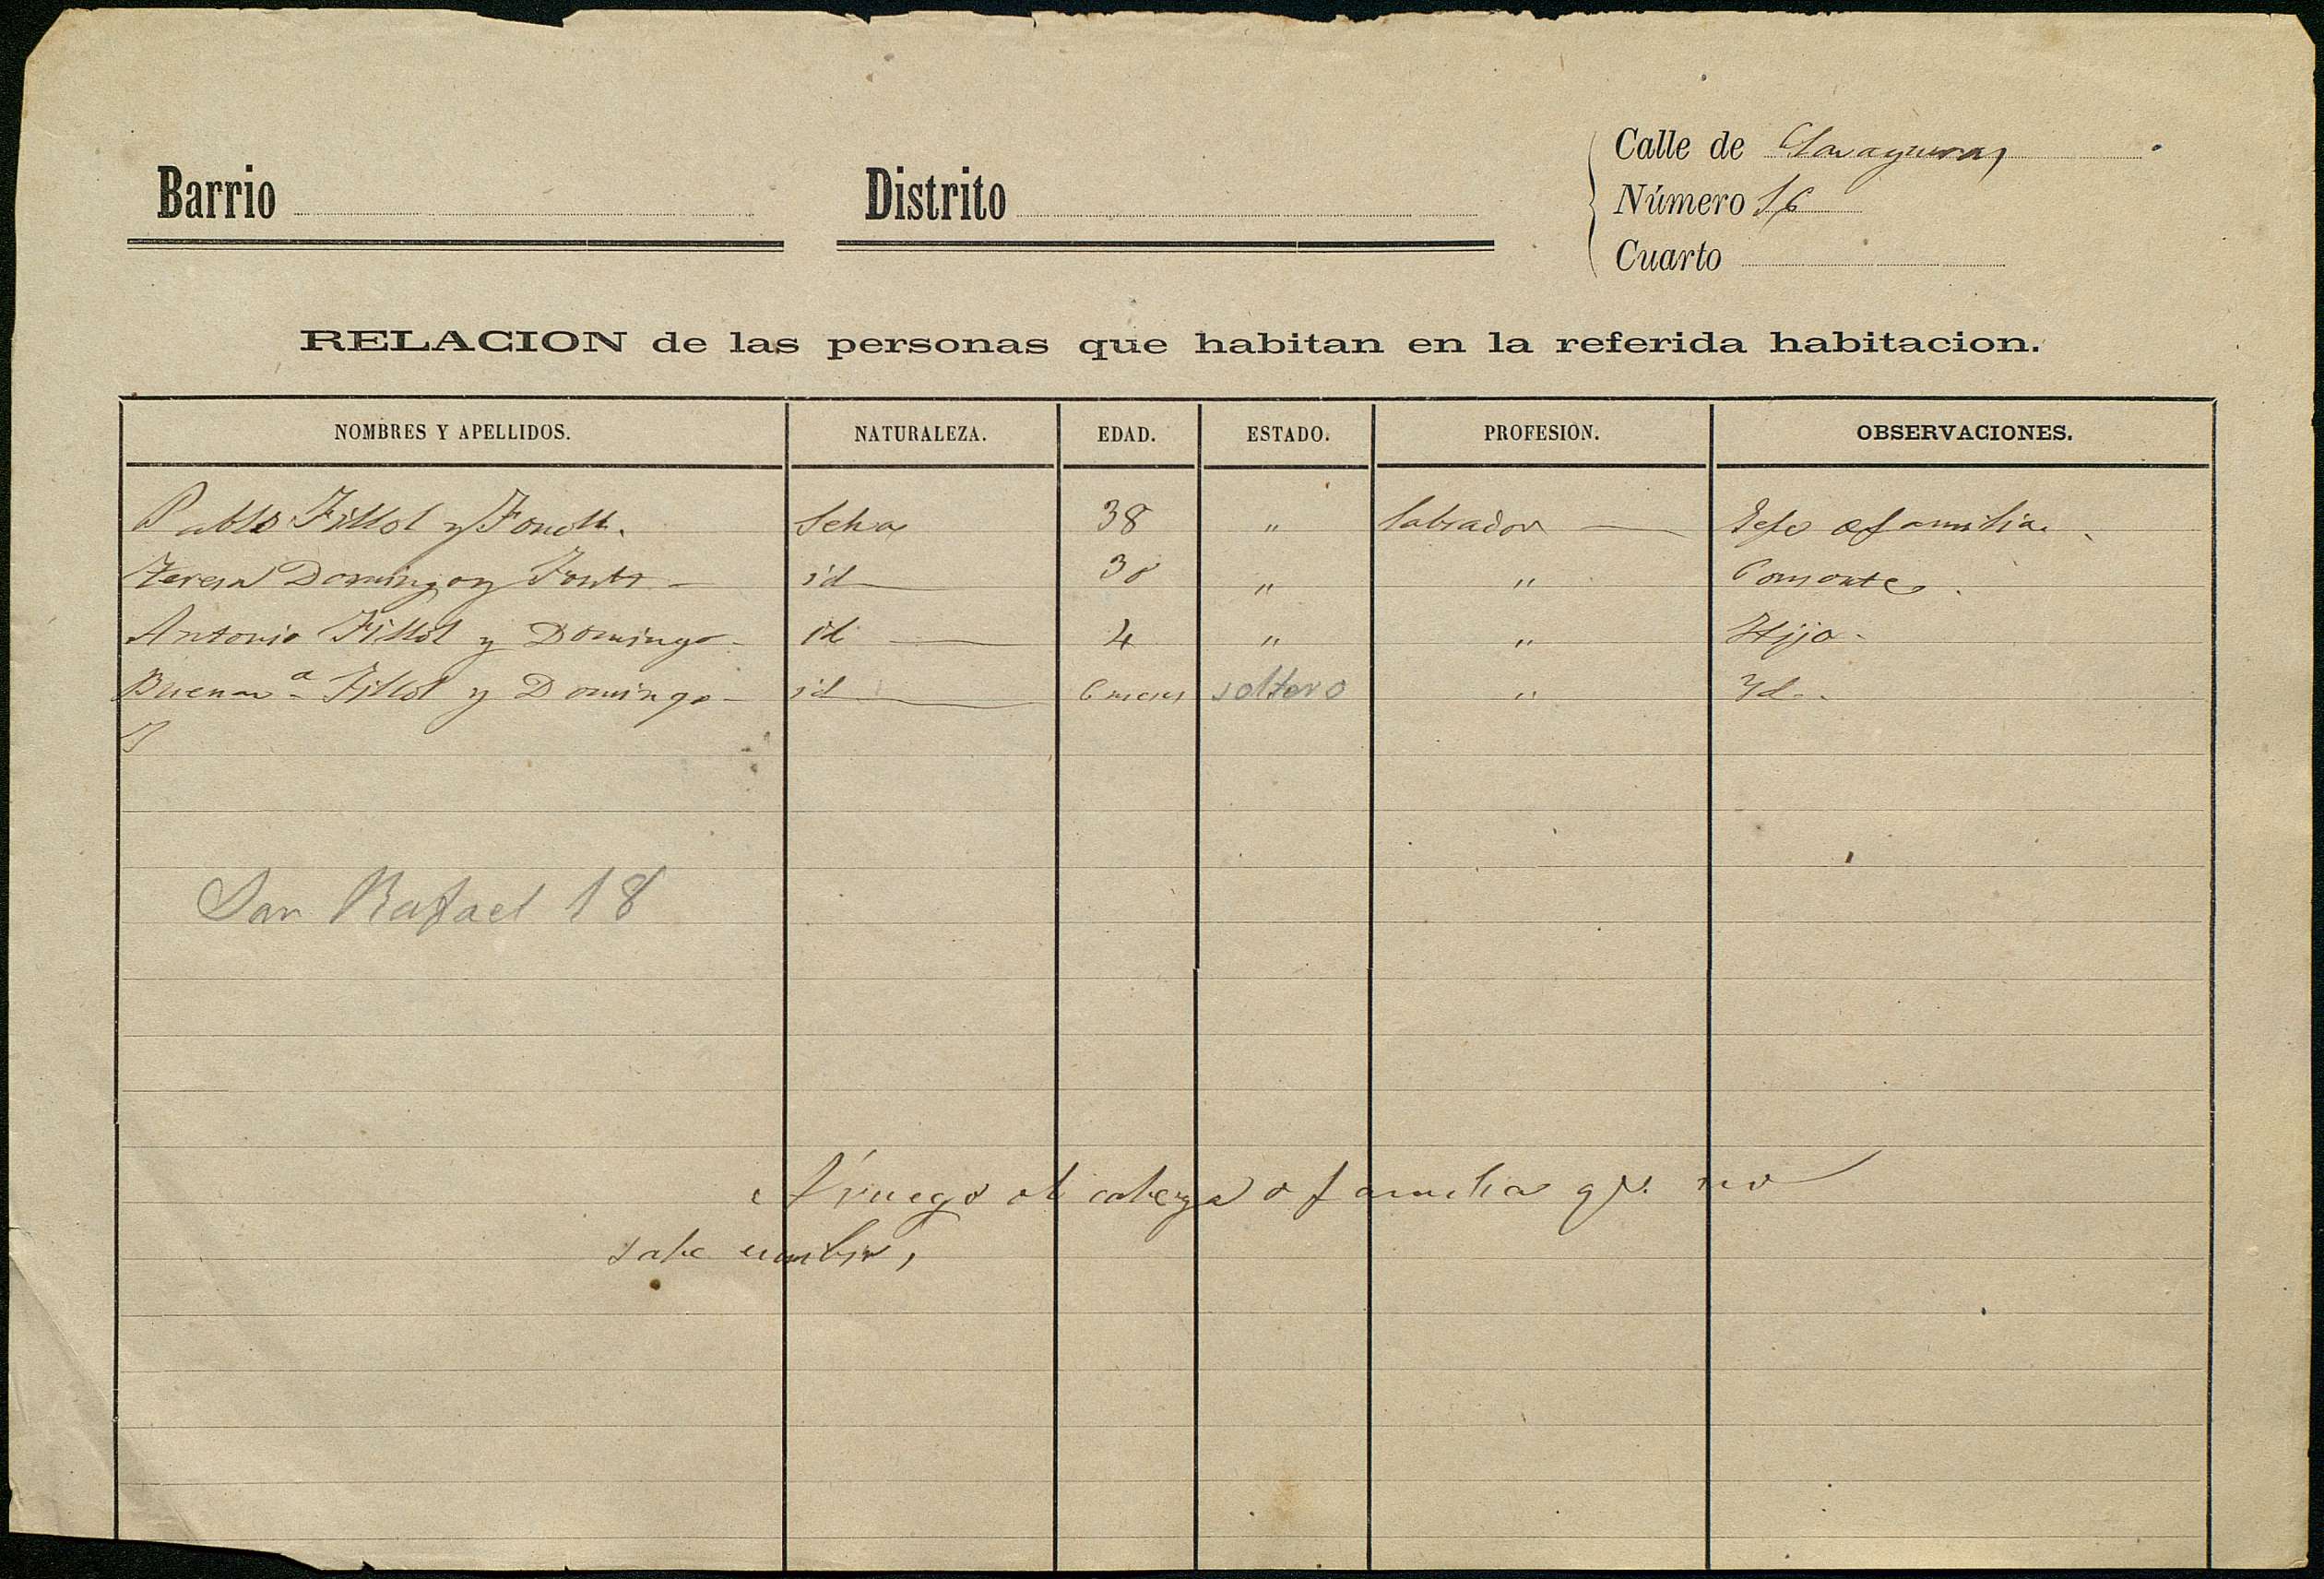 Calle de
Barrio Distrito Número 16
Cuarto
RELACION de las personas que habitan en la referida habitacion.
NOMBRES Y APELLIDOS. NATURALEZA. EDAD. ESTADO. PROFESION. OBSERVACIONES.
Pablo Fillol y Selva 38 " labrador — Jefe de familia.
Teresa Domingo y id — 30 " " Consorte.
Antonio Fillol y Domingo - id — 4 " " Hijo -
Buenavª Fillol y Domingo - id — 6 meses soltero " Yd -
San Rafael 18
A ruego del cabeza de familia q.e no
sabe escribir,